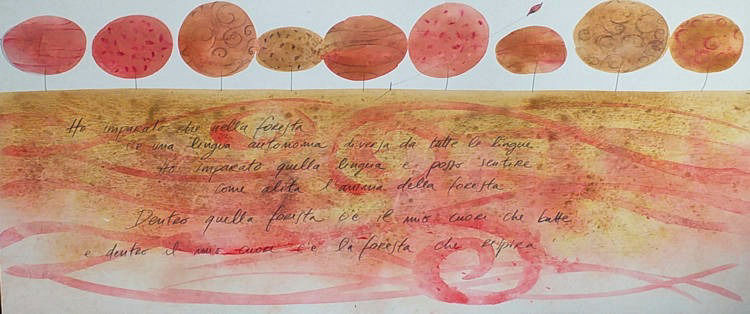 Ho imparato che nella foresta
c'è una lingua autonoma diversa da tutte le lingue
Ho imparato quella lingua e posso sentire
come alita l'anima della foresta
Dentro quella foresta c'è il mio cuore che batte
e dentro il mio cuore c'è la foresta che respira